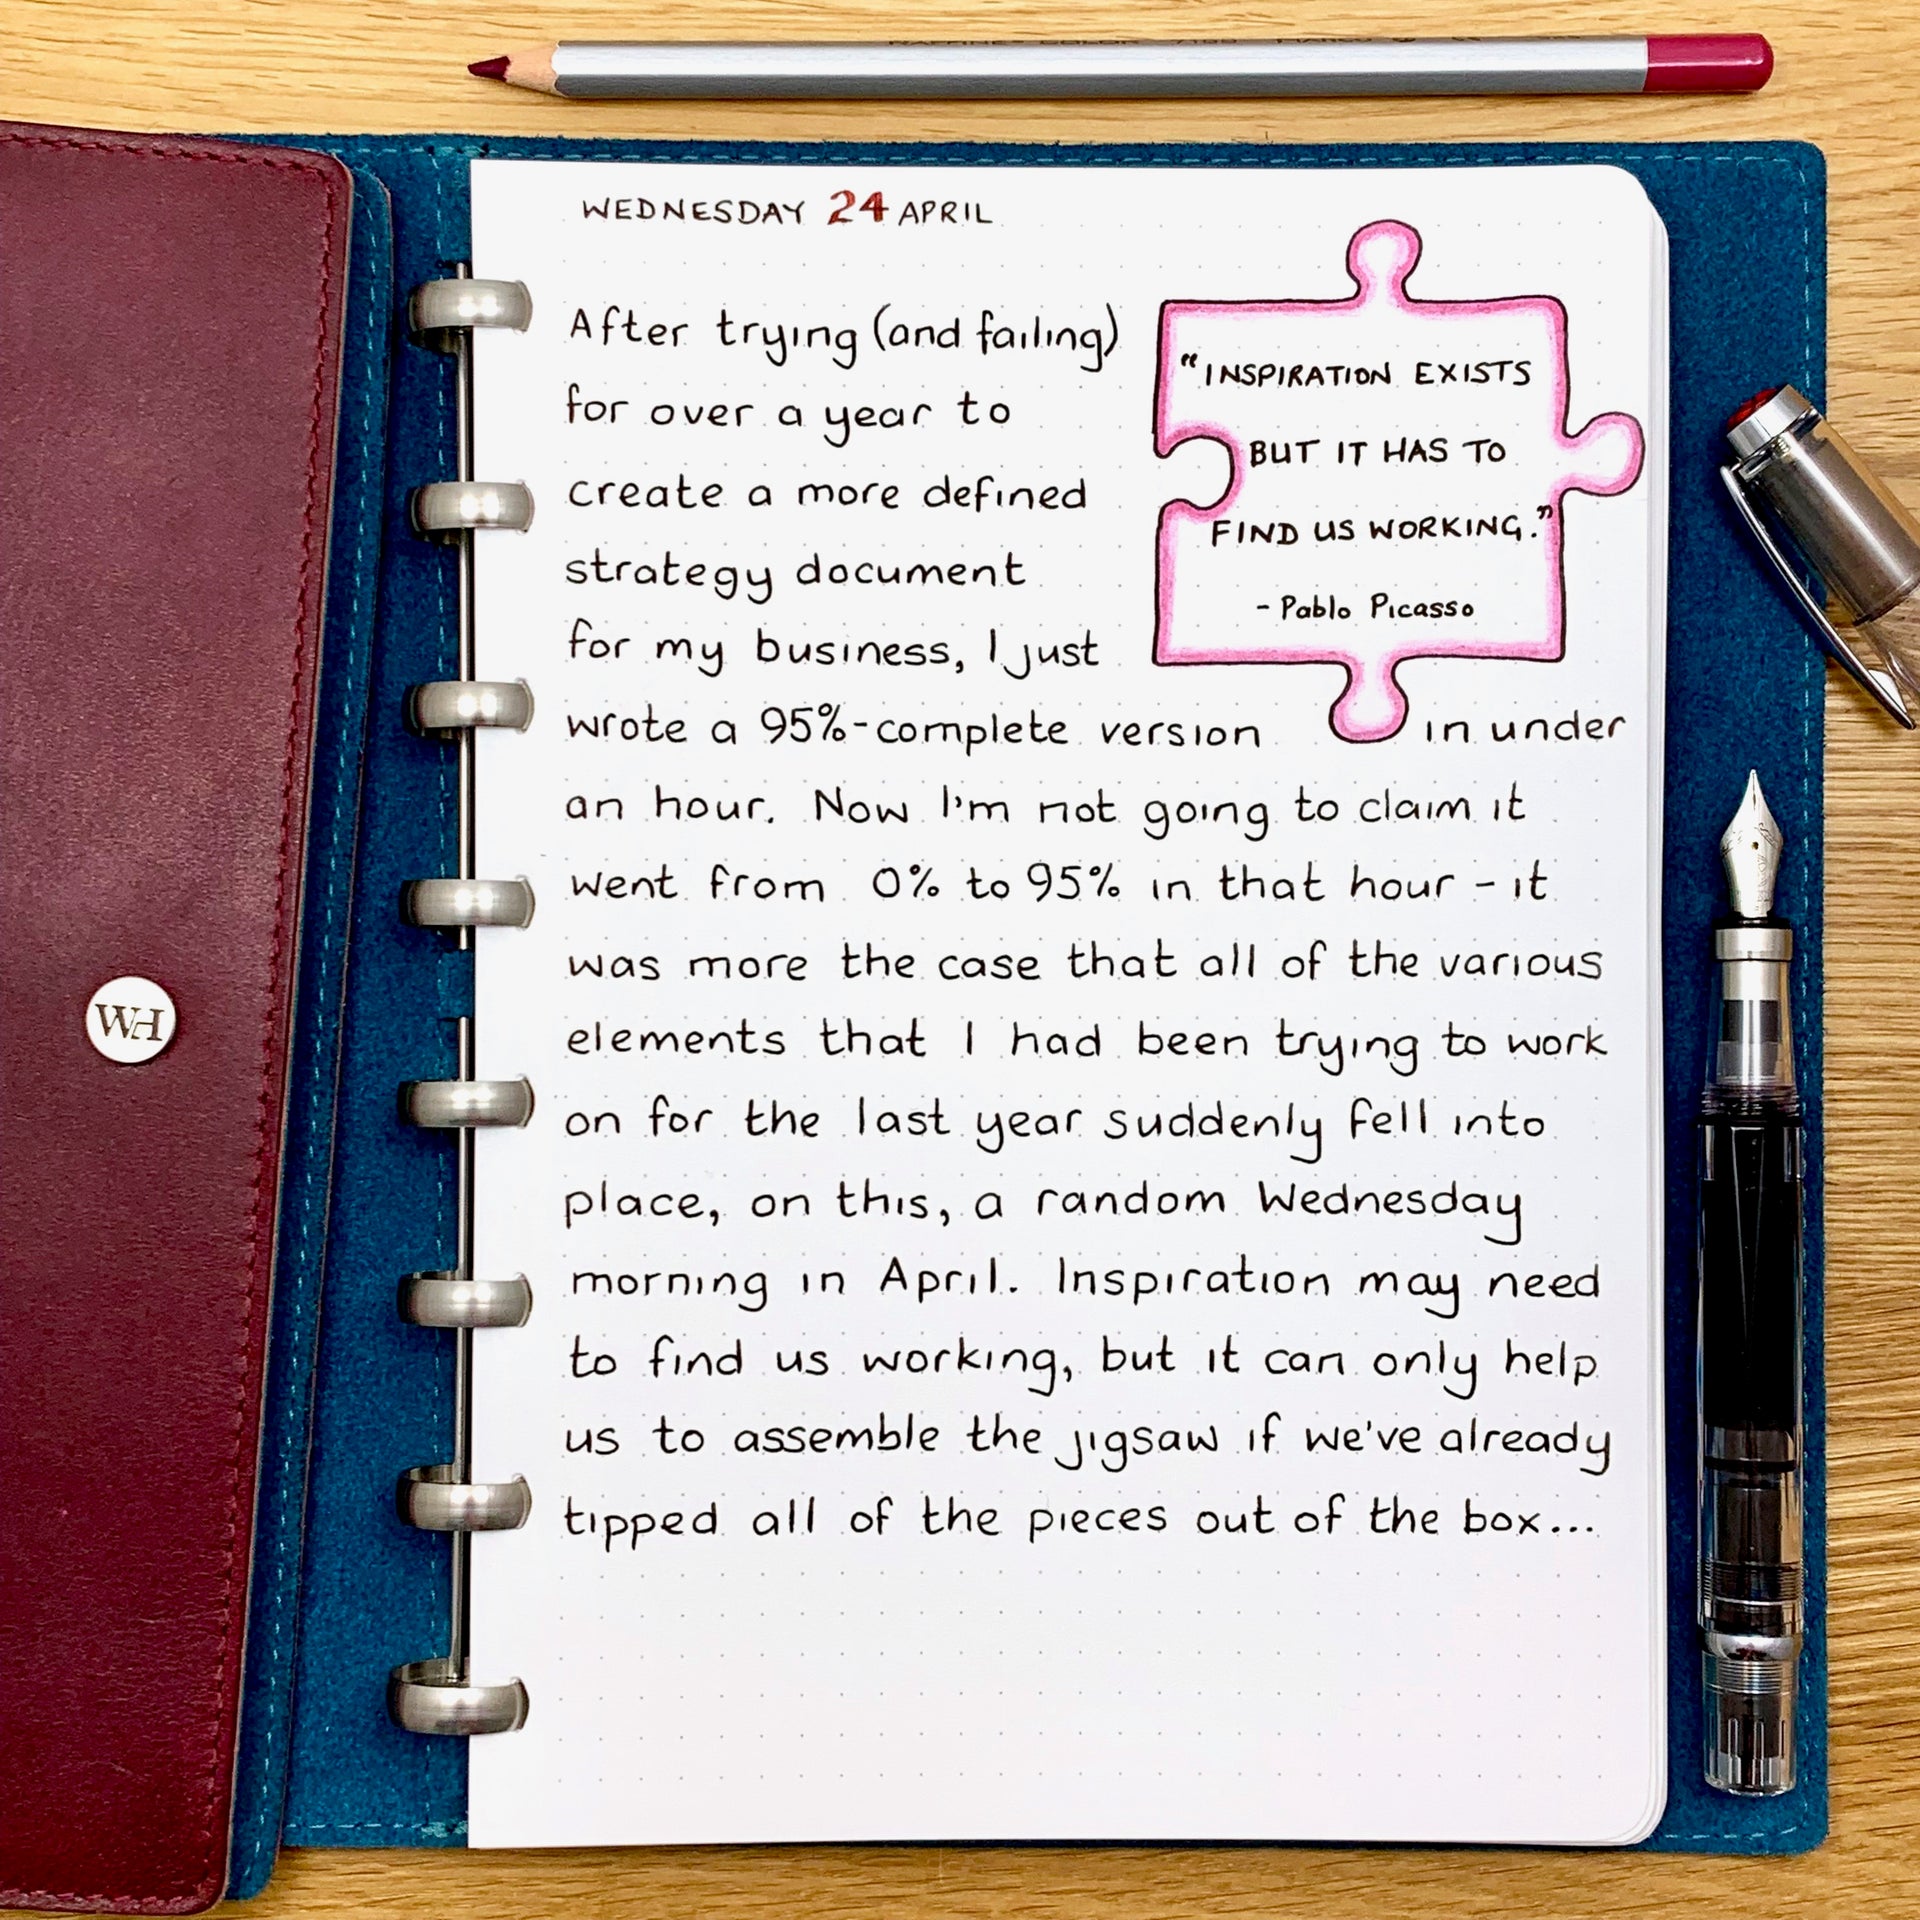 WEDNESDAY 24 APRIL
After trying (and failing)
for over a year to
create a more defined
strategy document
for my business, I just
wrote a 95%-complete version in under
an hour. Now I'm not going to claim it
went from 0% to 95% in that hour - it
was more the case that all of the various
elements that I had been trying to work
on for the last year suddenly fell into
place, on this, a random Wednesday
morning in April. Inspiration may need
to find us working, but it can only help
us to assemble the jigsaw if we've already
tipped all of the pieces out of the box...
"INSPIRATION EXISTS
BUT IT HAS TO
FIND US WORKING."
- Pablo Picasso
WH